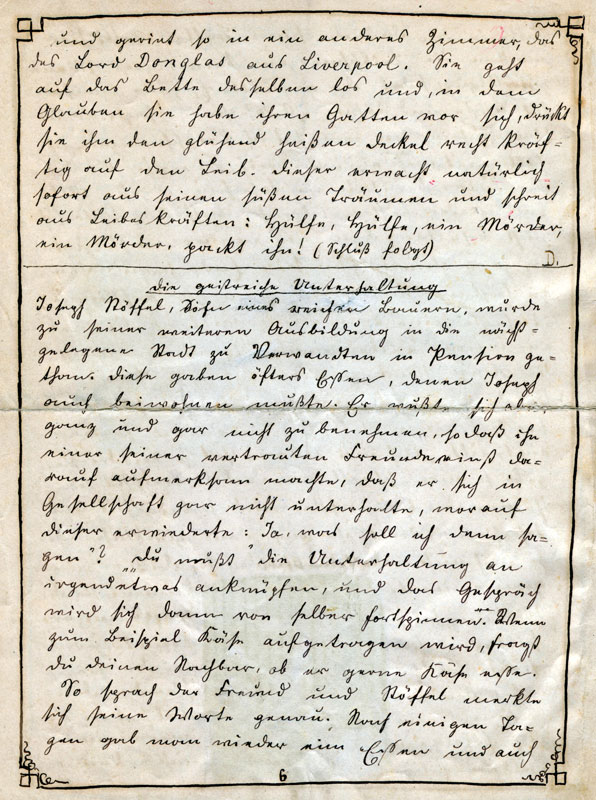 und geriet so in ein anderes Zimmer, das
des Lord Donglas aus Liverpool. Sie geht
auf das Bette desselben los und, in dem
Glauben sie habe ihren Gatten vor sich, drückt
sie ihm den glühend heißen Deckel recht kräf-
tig auf den Leib. Dieser erwacht natürlich
sofort aus seinen süßen Träumen und schreit
aus Leibeskräften: Hülfe, Hülfe, ein Mörder,
ein Mörder, packt ihn! (Schluß folgt)
D.
Die geistreiche Unterhaltung
Joseph Röffel, Sohn eines reichen Bauern, wurde
zu seiner weiteren Ausbildung in die nächst-
gelegene Stadt zu Verwandten in Pension ge-
than. Diese gaben öfters Essen, denen Joseph
auch beiwohnen mußte. Er wußte sich aber
ganz und gar nicht zu benehmen, so daß ihn
einer seiner vertrauten Freunde einst da-
rauf aufmerksam machte, daß er sich in
Gesellschaft gar nicht unterhalte, worauf
dieser erwiederte: Ja, was soll ich denn sa-
gen"? "Du mußt die Unterhaltung an
irgendetwas anknüpfen, und das Gespräch
wird sich dann von selber fortspinnen." Wenn
zum Beispiel Käse aufgetragen wird, fragst
du deinen Nachbar, ob er gerne Käse esse.
So sprach der Freund und Röffel merkte
sich seine Worte genau. Nach einigen Ta-
gen gab man wieder ein Essen und auch
6